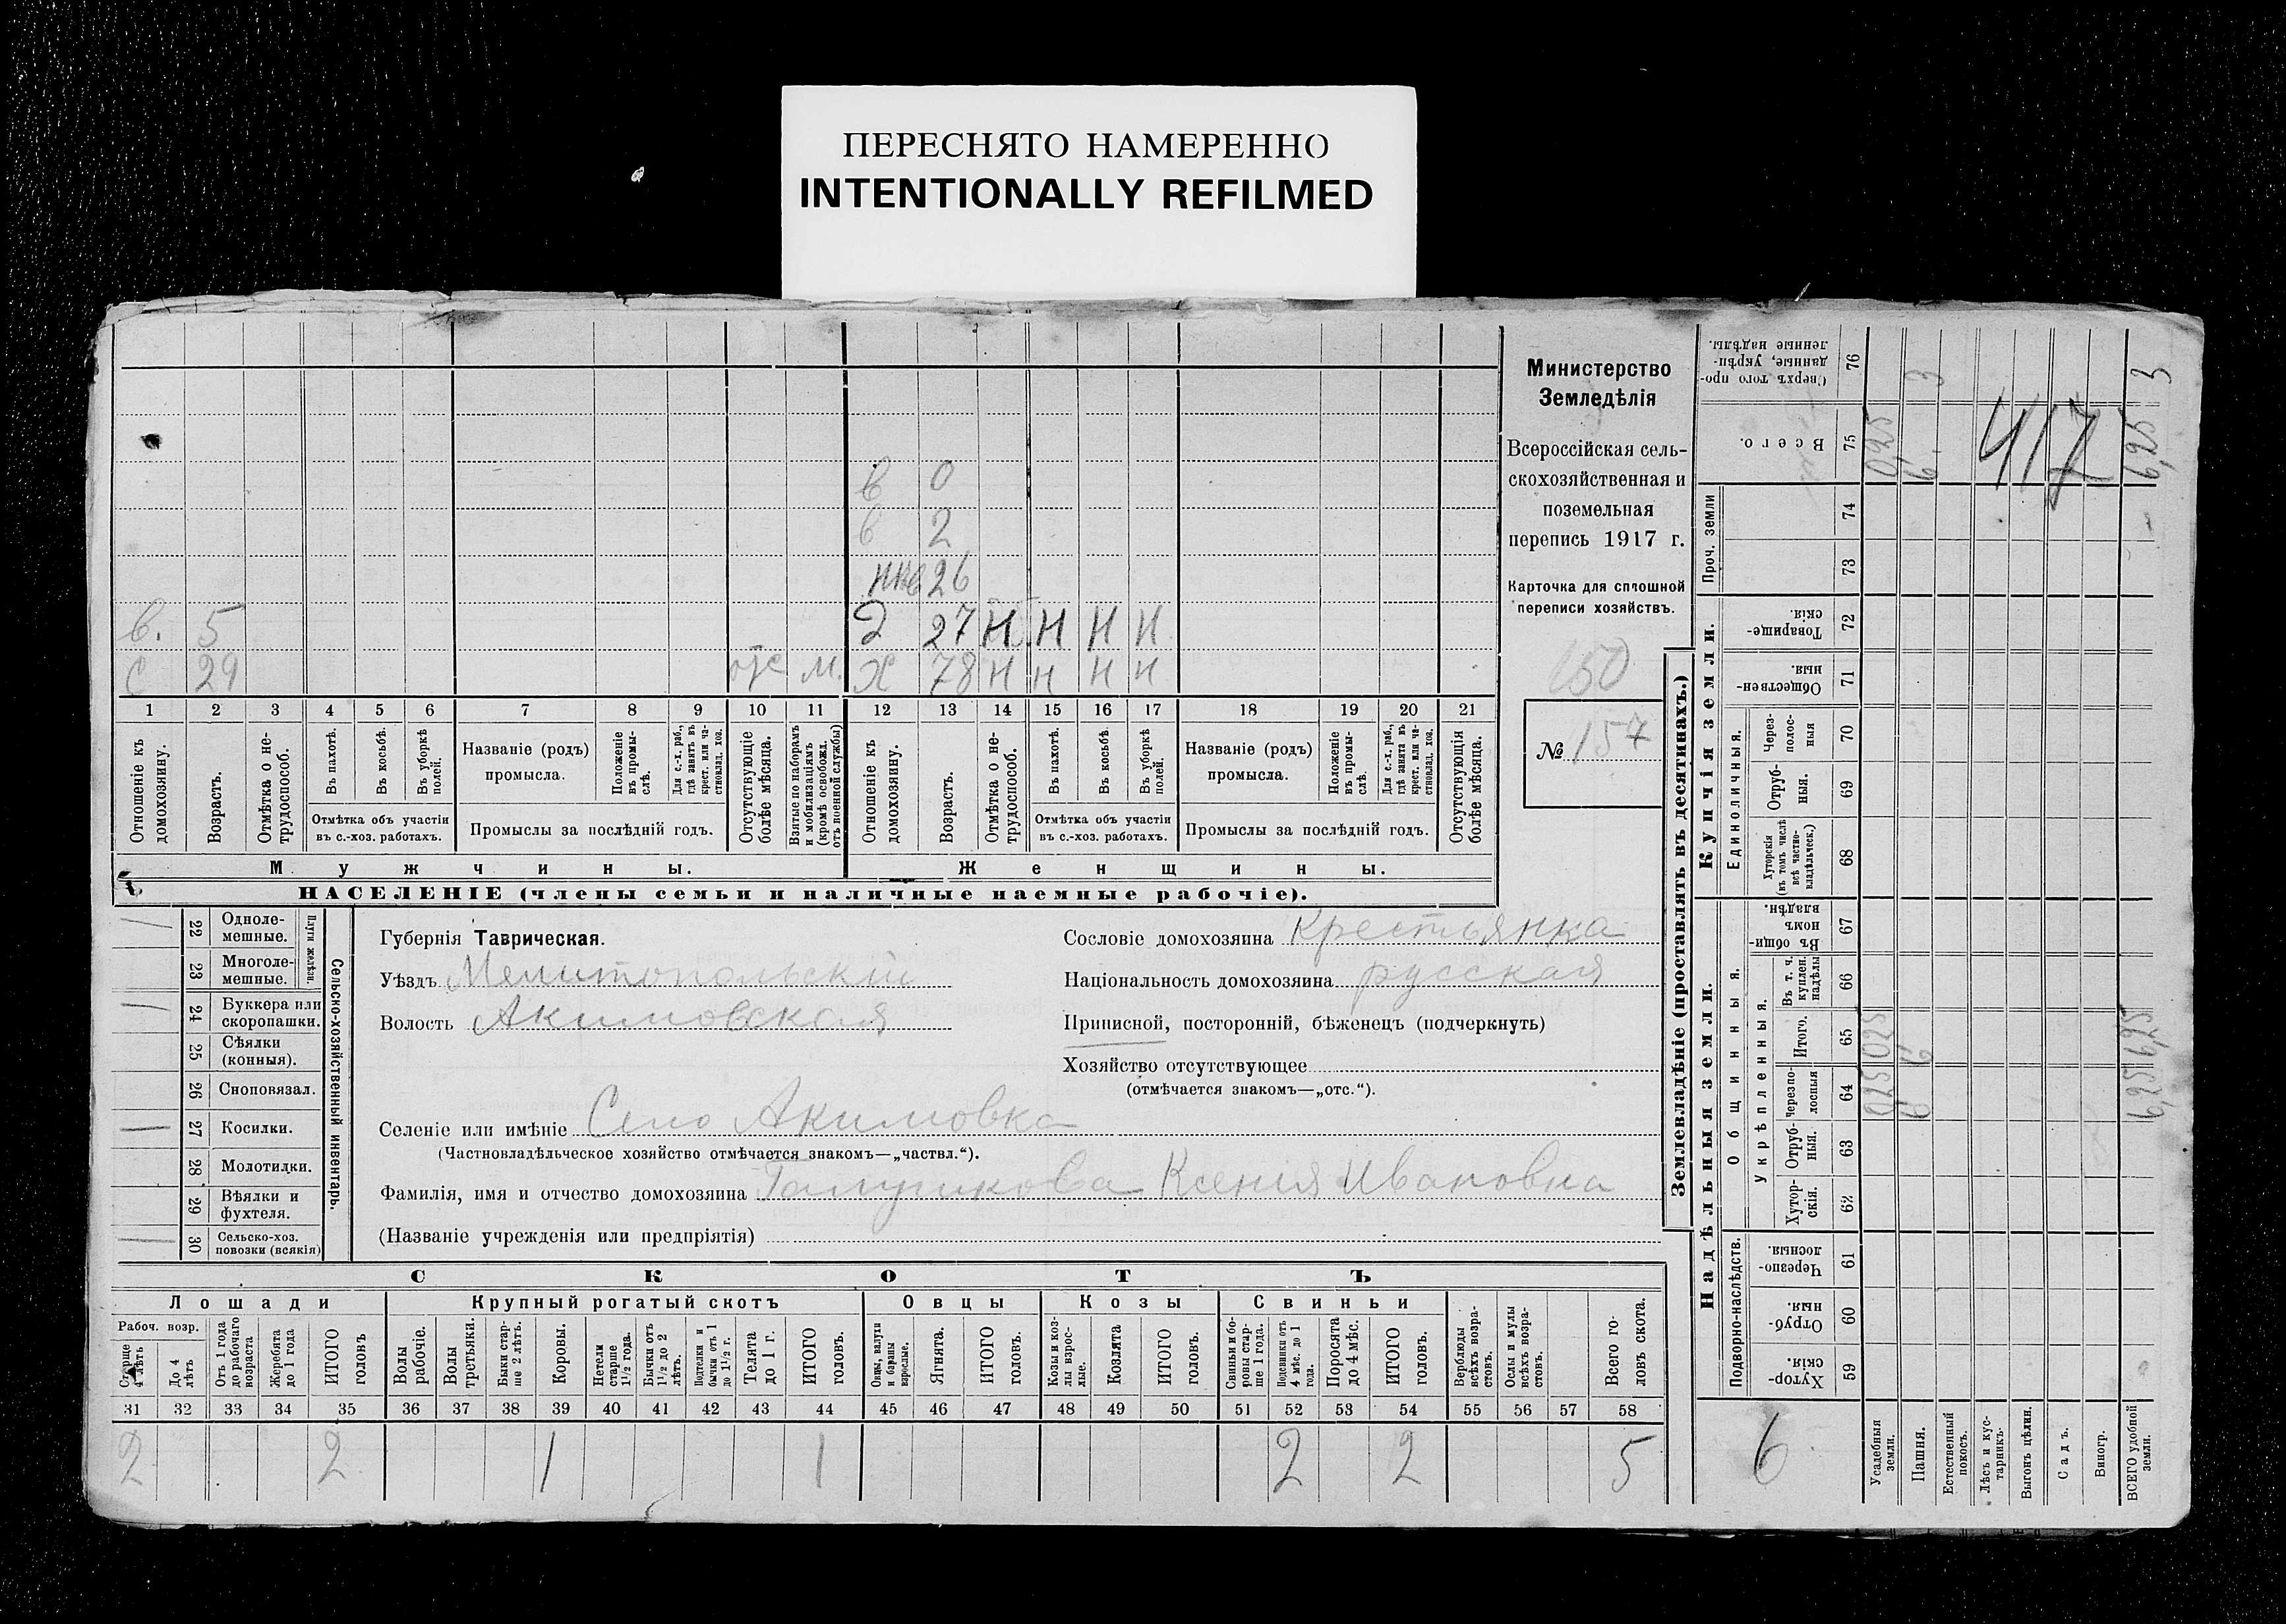 ПЕРЕСНЯТО НАМЕРЕННО
INTENTIONALLY REFILMED
Министерство
Земледѣлія
Всероссійская сель-
скохозяйственная и
поземельная
перепись 1917 г.
Карточка для сплошной
переписи хозяйствъ.
150
№ 157
в 0
в 2
26
в. 5 27 Н Н Н Н
с 29 отс м. Х 78 Н Н Н Н
1 2 3 4 5 6 7 8 9 10 11 12 13 14 15 16 17 18 19 20 21
Отношеніе къ домохозяину.
Возрастъ.
Отмѣтка о не-трудоспособ.
Въ пахотѣ.
Въ косьбѣ.
Въ уборкѣ полей.
Отмѣтка объ участіи въ с.-хоз. работахъ.
Названіе (родъ) промысла.
Положеніе въ промы-слѣ.
Для с.-х. раб., гдѣ занятъ въ крест. или ча-стновлад. хоз.
Промыслы за послѣдній годъ.
Отсутствующіе болѣе мѣсяца.
Взятые по наборамъ и мобилизаціямъ (кромѣ освобожд. отъ военной службы)
Отношеніе къ домохозяину.
Возрастъ.
Отмѣтка о не-трудоспособ.
Въ пахотѣ.
Въ косьбѣ.
Въ уборкѣ полей.
Отмѣтка объ участіи въ с.-хоз. работахъ.
Названіе (родъ) промысла.
Положеніе въ промы-слѣ.
Для с.-х. раб., гдѣ занята въ крест. или ча-стновлад. хоз.
Промыслы за послѣдній годъ.
Отсутствующія болѣе мѣсяца.
Мужчины. Женщины.
НАСЕЛЕНІЕ (члены семьи и наличные наемные рабочіе).
Сельско-хозяйственный инвентарь.
Плуги желѣзн.
22 Одноле-мешные.
23 Многоле-мешные.
24 Буккера или скоропашки.
25 Сѣялки (конныя).
26 Сноповязал.
27 Косилки.
28 Молотилки.
29 Вѣялки и фухтеля.
30 Сельско-хоз. повозки (всякія)
Губернія Таврическая.
Уѣздъ Мелитопольскій
Волость Акимовская
Сословіе домохозяина Крестьянка
Національность домохозяина русская
Приписной, посторонній, бѣженецъ (подчеркнуть)
Хозяйство отсутствующее
(отмѣчается знакомъ—„отс.“).
Селеніе или имѣніе Село Акимовка
(Частновладѣльческое хозяйство отмѣчается знакомъ—„частвл.“).
Фамилія, имя и отчество домохозяина Ксенія Ивановна
(Названіе учрежденія или предпріятія)
СКОТЪ
Лошади Крупный рогатый скотъ Овцы Козы Свиньи
Рабоч. возр.
Старше 4 лѣтъ
До 4 лѣтъ
Отъ 1 года до рабочаго возраста
Жеребята до 1 года
ИТОГО головъ
Волы рабочіе.
Волы третьяки.
Быки стар-ше 2 лѣтъ.
Коровы.
Нетели старше 1½ года.
Бычки отъ 1½ до 2 лѣтъ.
Подтелки и бычки отъ 1 до 1½ г.
Телята до 1 г.
ИТОГО головъ.
Овцы, валухи и бараны взрослые.
Ягнята.
ИТОГО головъ.
Козы и коз-лы взрос-лые.
Козлята
ИТОГО головъ.
Свиньи и бо-ровы стар-ше 1 года.
Подсвинки отъ 4 мѣс. до 1 года.
Поросята до 4 мѣс.
ИТОГО головъ.
Верблюды всѣхъ возра-стовъ.
Ослы и мулы всѣхъ возра-стовъ.
Всего го-ловъ скота.
31 32 33 34 35 36 37 38 39 40 41 42 43 44 45 46 47 48 49 50 51 52 53 54 55 56 57 58
2 2 1 1 2 2 5
Землевладѣніе (проставлять въ десятинахъ.)
Надѣльныя земли. Купчія земли. Проч. земли
Подворно-наслѣдств.
Общинныя.
Укрѣпленныя.
Единоличныя.
Хутор-скія. 59
Отруб-ныя. 60
Черезпо-лосныя. 61
Хутор-скія. 62
Отруб-ныя. 63
Черезпо-лосныя 64
Итого. 65
Въ т. ч. куплен. надѣлы 66
Въ общин-номъ владѣн. 67
Хуторскія (въ томъ числѣ всѣ частно-владѣльческ.) 68
Отруб-ныя. 69
Через-полос-ныя 70
Обществен-ныя. 71
Товарище-скія. 72
73
74
Всего. 75
Сверхъ того про-данные, укрѣп-ленные надѣлы. 76
Усадебныя земли. 025 025 0,25
Пашня. 6 6 6. 3
Естественный покосъ.
Лѣсъ и кус-тарникъ.
Выгонъ цѣлин.
Садъ.
Виногр.
ВСЕГО удобной земли. 6,25 6,25 6,25 3
417
6